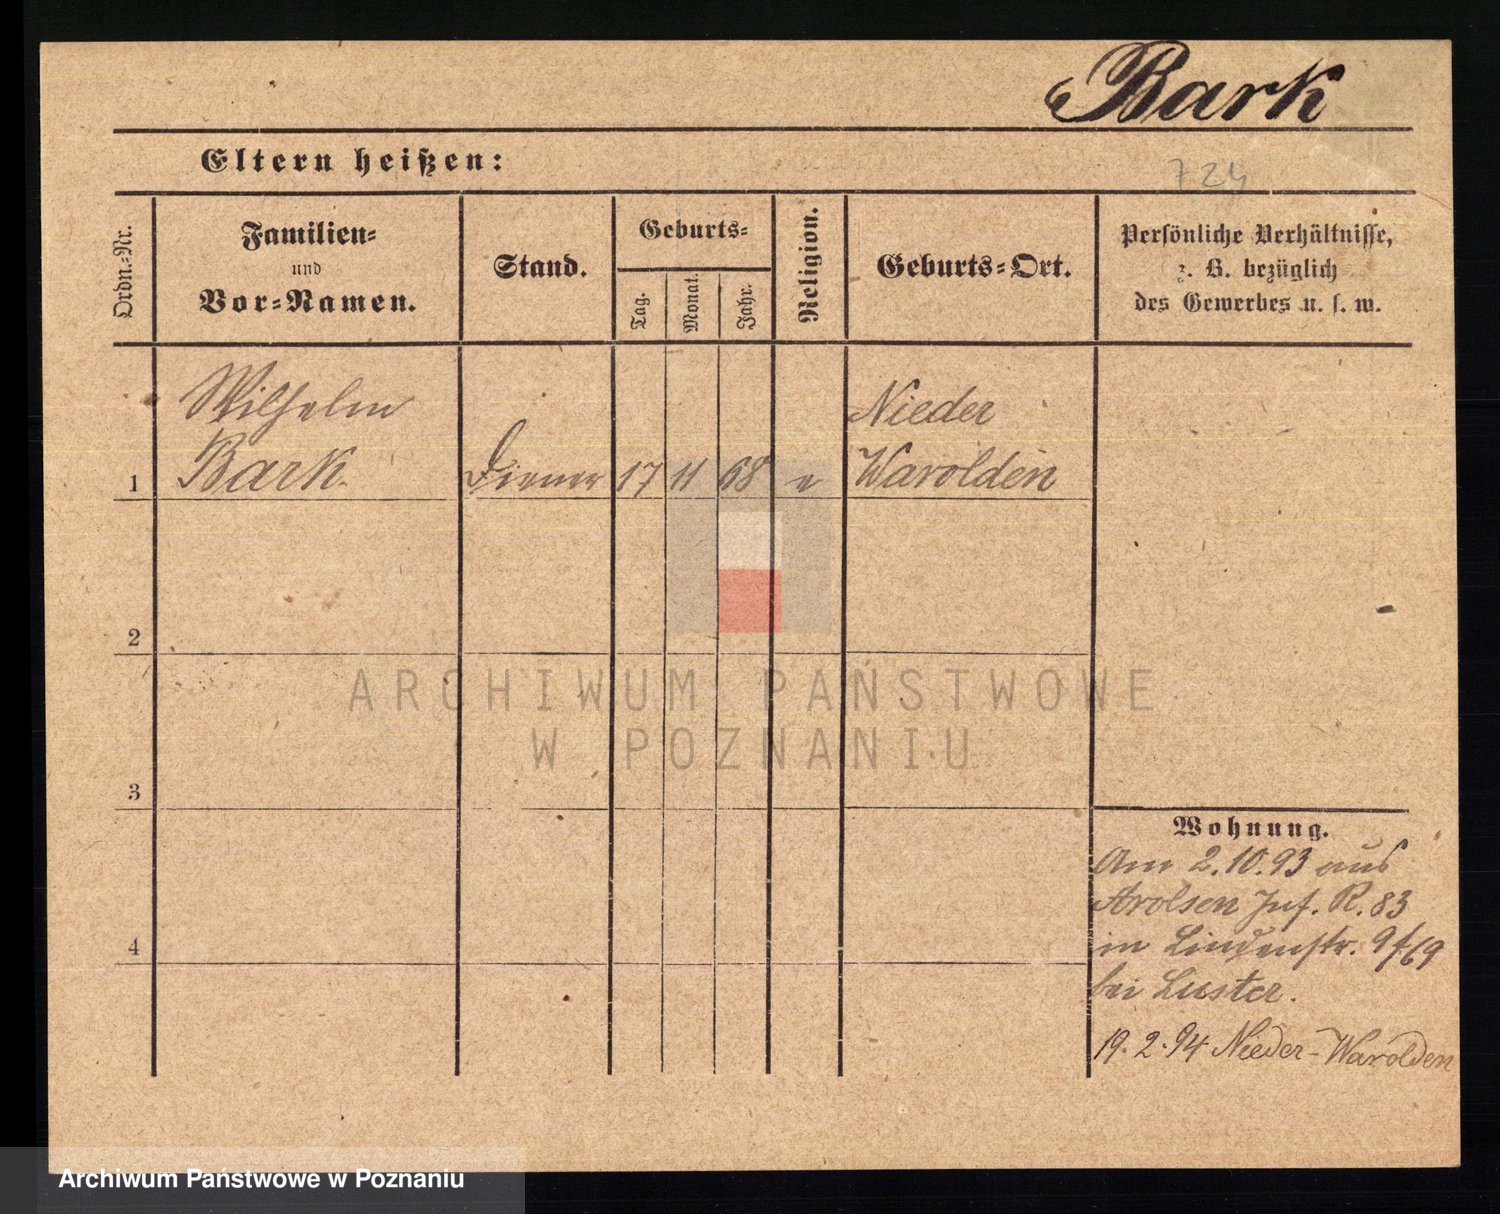 Bark
Eltern heißen:
724
Ordn.-Nr.
Familien-
und
Vor-Namen.
Stand.
Geburts-
Tag.
Monat.
Jahr.
Religion.
Geburts-Ort.
Persönliche Verhältnisse,
z. B. bezüglich
des Gewerbes u. s. w.
Wilhelm
Bark.
Nieder
1 Diener 17 11 68 e Warolden
2
ARCHIWUM PAŃSTWOWE
W POZNANIU
3
Wohnung.
Am 2.10.93 aus
Arolsen Inf. R. 83
in Lindenstr. 9 f. 69
bei Luster.
4
19.2.94 Nieder-Warolden
Archiwum Państwowe w Poznaniu